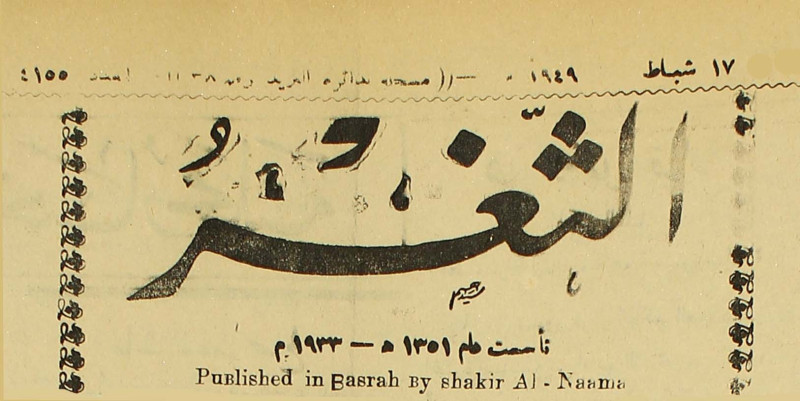 ١٧ شباط ١٩٤٩ — (( مسجلة بدائرة البريد ٤١٥٥
الثغر
تأسست عام ١٣٥١ ه — ١٩٣٣ م
Published in Basrah By shakir Al - Naama